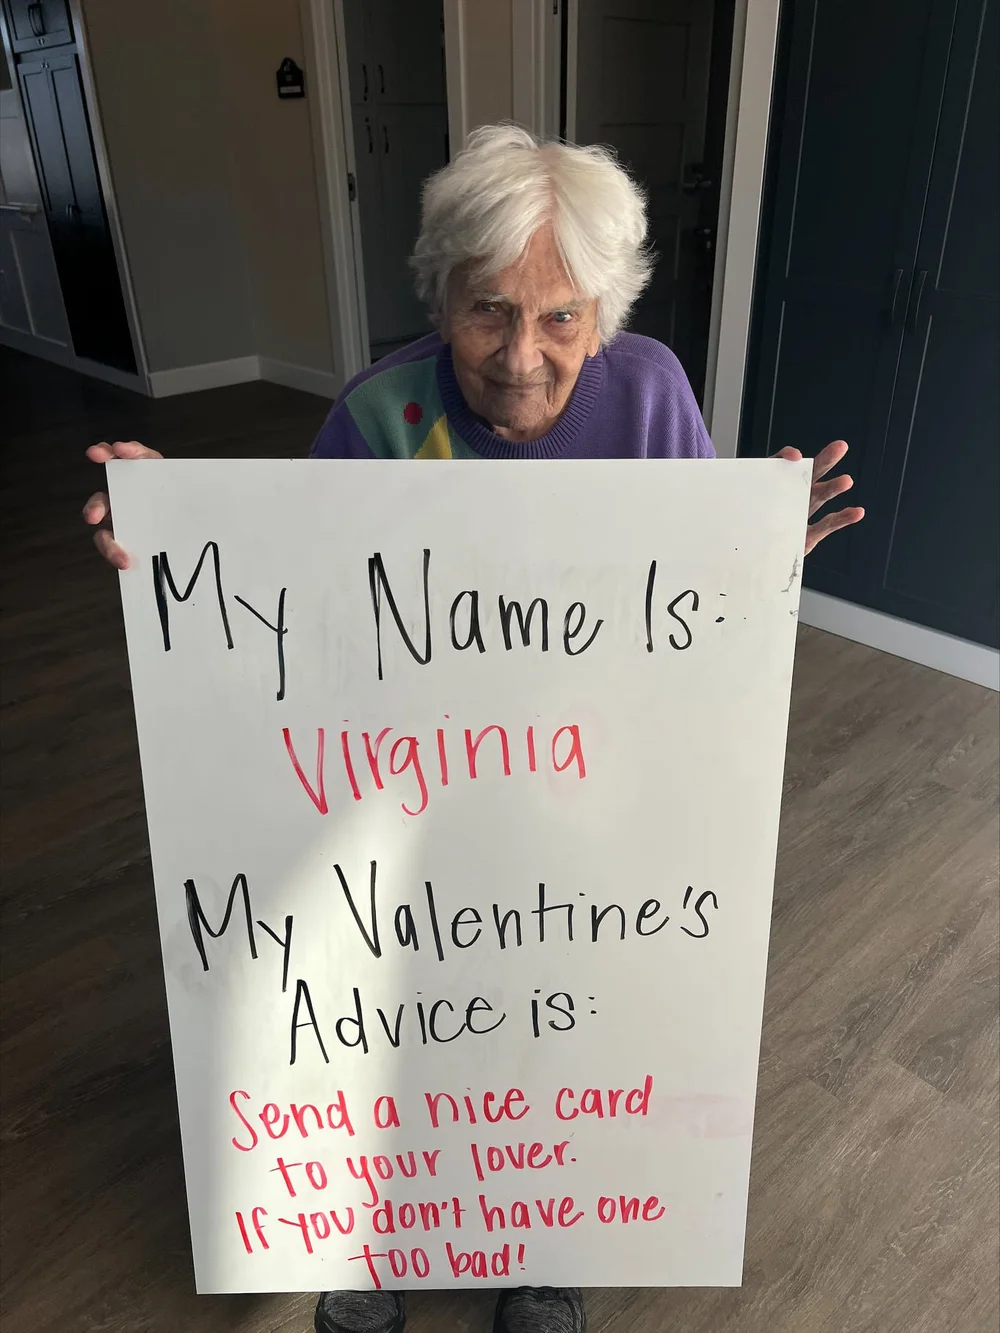 My Name Is:
Virginia
My Valentine's
Advice is:
Send a nice card
to your lover.
If you don't have one
too bad!